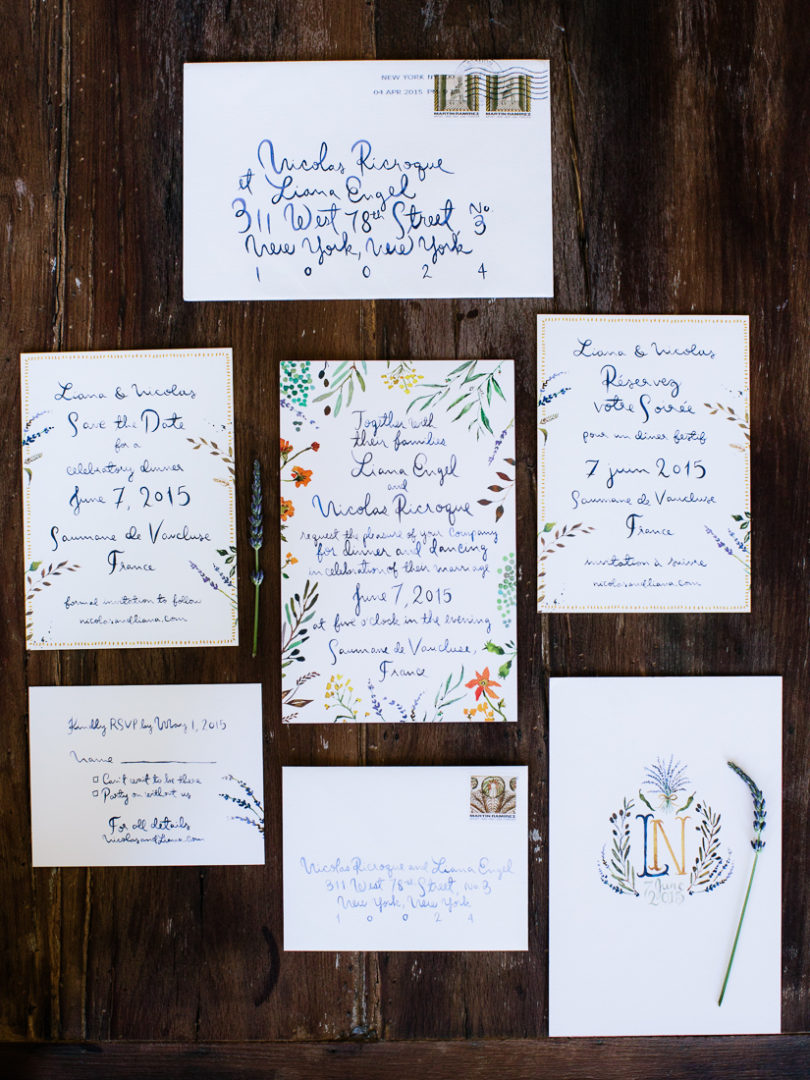 NEW YORK NY
04 APR 2015 PM
MARTÍN RAMÍREZ MARTÍN RAMÍREZ
Nicolas Ricroque
et Liana Engel
311 West 78th Street, No. 3
New York, New York
1 0 0 2 4
Liana & Nicolas
Save the Date
for a
celebratory dinner
June 7, 2015
Saumane de Vaucluse
France
formal invitation to follow
nicolasandliana.com
Together with
their families
Liana Engel
and
Nicolas Ricroque
request the pleasure of your company
for dinner and dancing
in celebration of their marriage
June 7, 2015
at five o'clock in the evening
Saumane de Vaucluse,
France
Liana & Nicolas
Réservez
votre Soirée
pour un dîner festif
7 juin 2015
Saumane de Vaucluse
France
invitation à suivre
nicolasandliana.com
Kindly RSVP by May 1, 2015
Name
Can't wait to be there
Party on without us
For all details
nicolasandliana.com
MARTÍN RAMÍREZ
Nicolas Ricroque and Liana Engel
311 West 78th Street, No 3
New York, New York
1 0 0 2 4
LN
7 June
2015